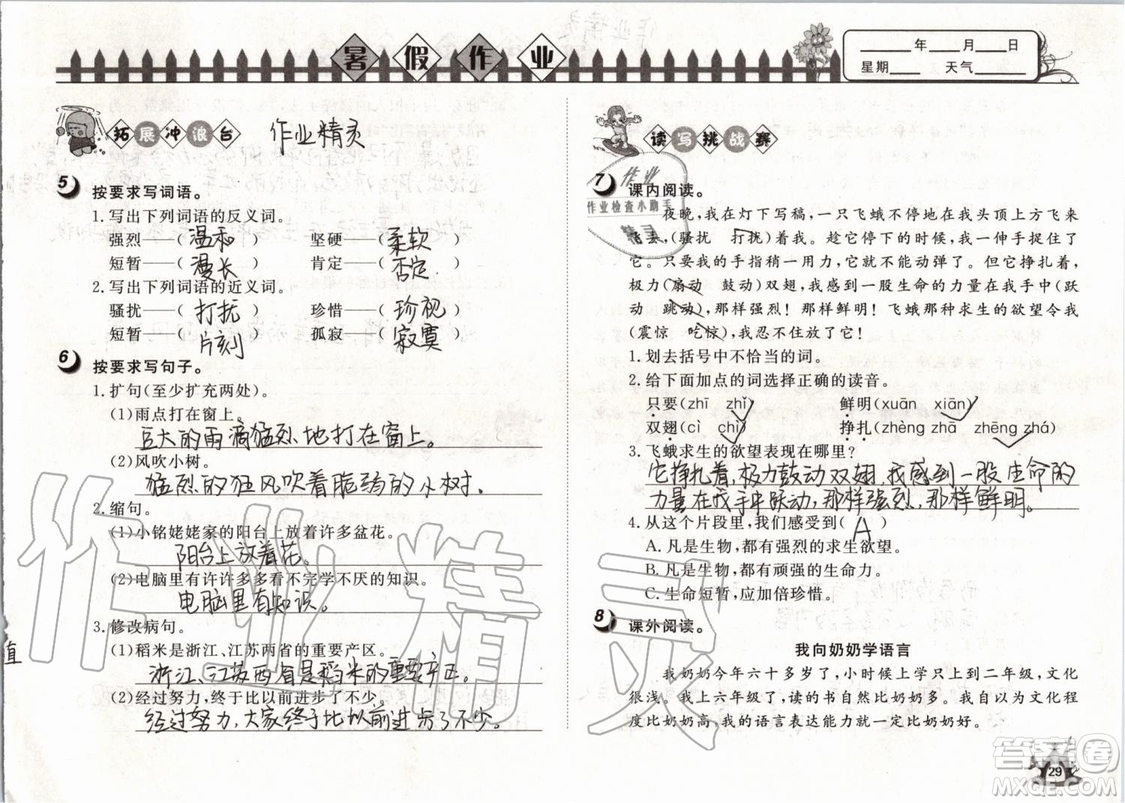 作业精灵
暑假作业
____年____月____日
星期____ 天气____
拓展冲浪台 作业精灵
5 按要求写词语。
1. 写出下列词语的反义词。
强烈——( 温和 ) 坚硬——( 柔软 )
短暂——( 漫长 ) 肯定——( 否定 )
2. 写出下列词语的近义词。
骚扰——( 打扰 ) 珍惜——( 珍视 )
短暂——( 片刻 ) 孤寂——( 寂寞 )
6 按要求写句子。
1. 扩句(至少扩充两处)。
(1)雨点打在窗上。
巨大的雨滴猛烈地打在窗上。
(2)风吹小树。
猛烈的狂风吹着脆弱的小树。
2. 缩句。
(1)小铭姥姥家的阳台上放着许多盆花。
阳台上放着花。
(2)电脑里有许许多多看不完学不厌的知识。
电脑里有知识。
3. 修改病句。
(1)稻米是浙江、江苏两省的重要产区。
浙江、江苏两省是稻米的重要产区。
(2)经过努力,终于比以前进步了不少。
经过努力,大家终于比以前进步了不少。
读写挑战赛
作业
作业检查小助手
精灵
7 课内阅读。
夜晚,我在灯下写稿,一只飞蛾不停地在我头上方飞来
飞去,(骚扰 打扰)着我。趁它停下的时候,我一伸手捉住了
它。只要我的手指稍一用力,它就不能动弹了。但它挣扎着,
极力(扇动 鼓动)双翅,我感到一股生命的力量在我手中(跃
动 跳动),那样强烈!那样鲜明!飞蛾那种求生的欲望令我
(震惊 吃惊),我忍不住放了它!
1. 划去括号中不恰当的词。
2. 给下面加点的词选择正确的读音。
只要(zhī zhǐ) 鲜明(xuān xiān)
双翅(cì chì) 挣扎(zhèng zhā zhēng zhá)
3. 飞蛾求生的欲望表现在哪里?
它挣扎着,极力鼓动双翅,我感到一股生命的
力量在我手中跃动,那样强烈、那样鲜明。
4. 从这个片段里,我们感受到( A )
A. 凡是生物,都有强烈的求生欲望。
B. 凡是生物,都有顽强的生命力。
C. 生命短暂,应加倍珍惜。
8 课外阅读。
我向奶奶学语言
我奶奶今年六十多岁了,小时候上学只上到二年级,文化
很浅。我上六年级了,读的书自然比奶奶多。我自以为文化程
度比奶奶高,我的语言表达能力就一定比奶奶好。
值
作业精灵
29
答案圈
MXQE.COM